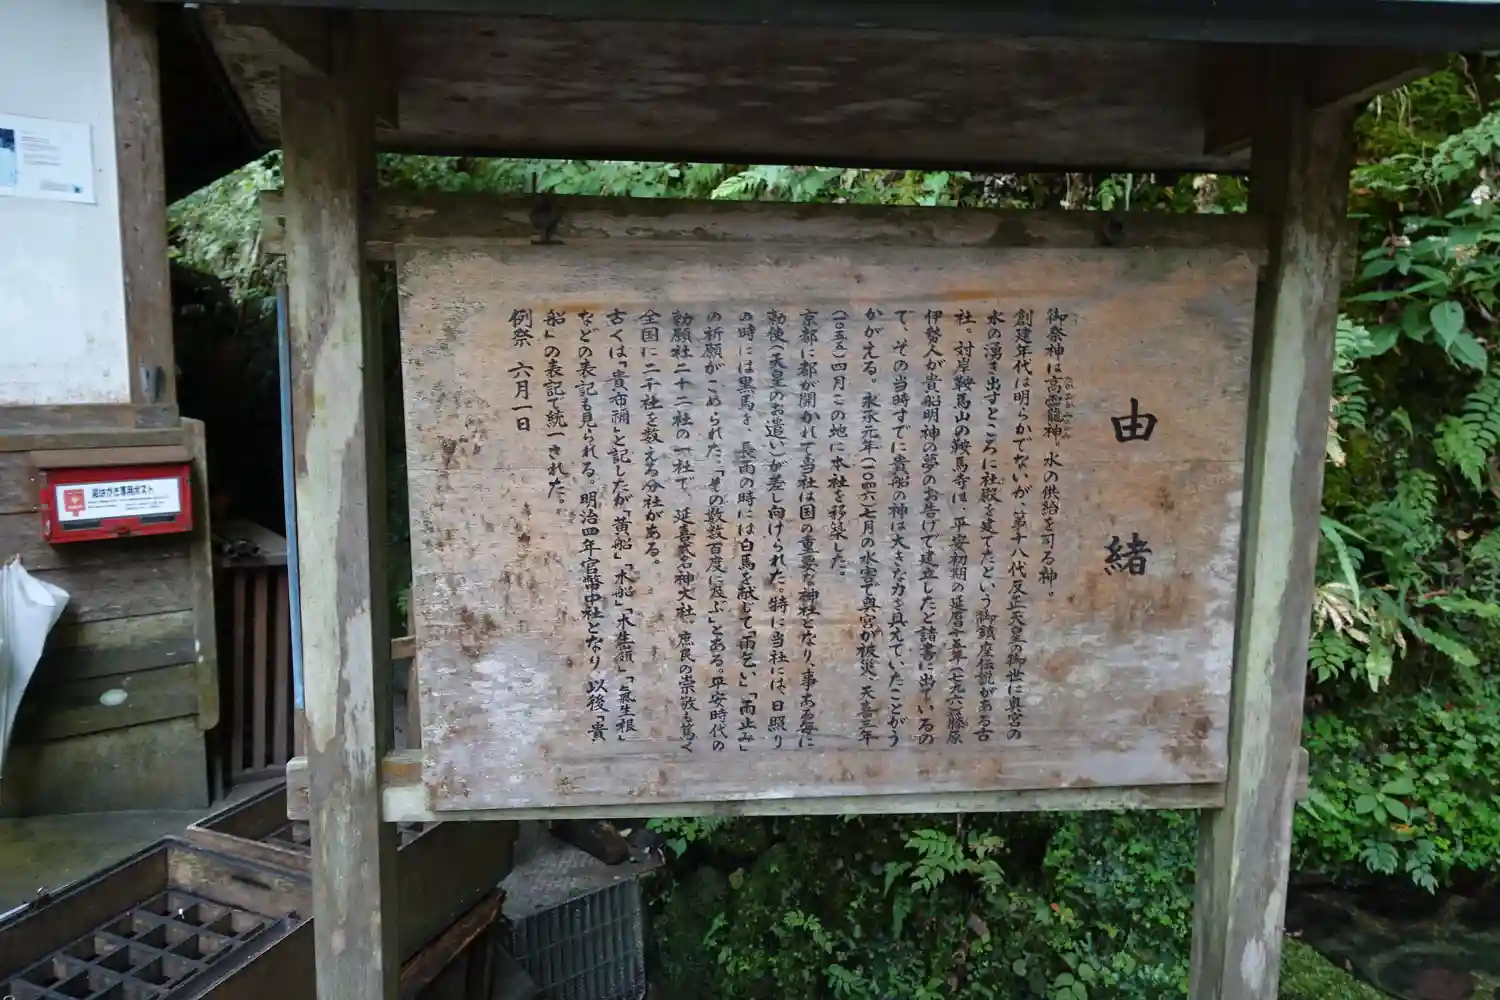 由緒
御祭神は高龗神。水の供給を司る神。
創建年代は明らかでないが、第十八代反正天皇の御世に奥宮の
水の湧き出すところに社殿を建てたという御鎮座伝説がある古
社。対岸鞍馬山の鞍馬寺は、平安初期の延暦十五年(七九六)藤原
伊勢人が貴船明神の夢のお告げで建立したと諸書に出ているの
で、その当時すでに貴船の神は大きな力を具えていたことがう
かがえる。永承元年(一〇四六)七月の水害で奥宮が被災、天喜三年
(一〇五五)四月この地に本社を移築した。
京都に都が開かれて当社は国の重要な神社となり、事ある毎に
勅使(天皇のお遣い)が差し向けられた。特に当社には、日照り
の時には黒馬を、長雨の時には白馬を献じて「雨乞い」「雨止み」
の祈願がこめられた。「その数数百度に及ぶ」とある。平安時代の
勅願社二十二社の一社で、延喜式名神大社、庶民の崇敬も篤く
全国に二千社を数える分社がある。
古くは「貴布禰」と記したが「黄船」「木船」「木生嶺」「氣生根」
などの表記も見られる。明治四年官幣中社となり、以後「貴
船」の表記で統一された。
例祭 六月一日
たかおかみのかみ
はがき専用ポスト